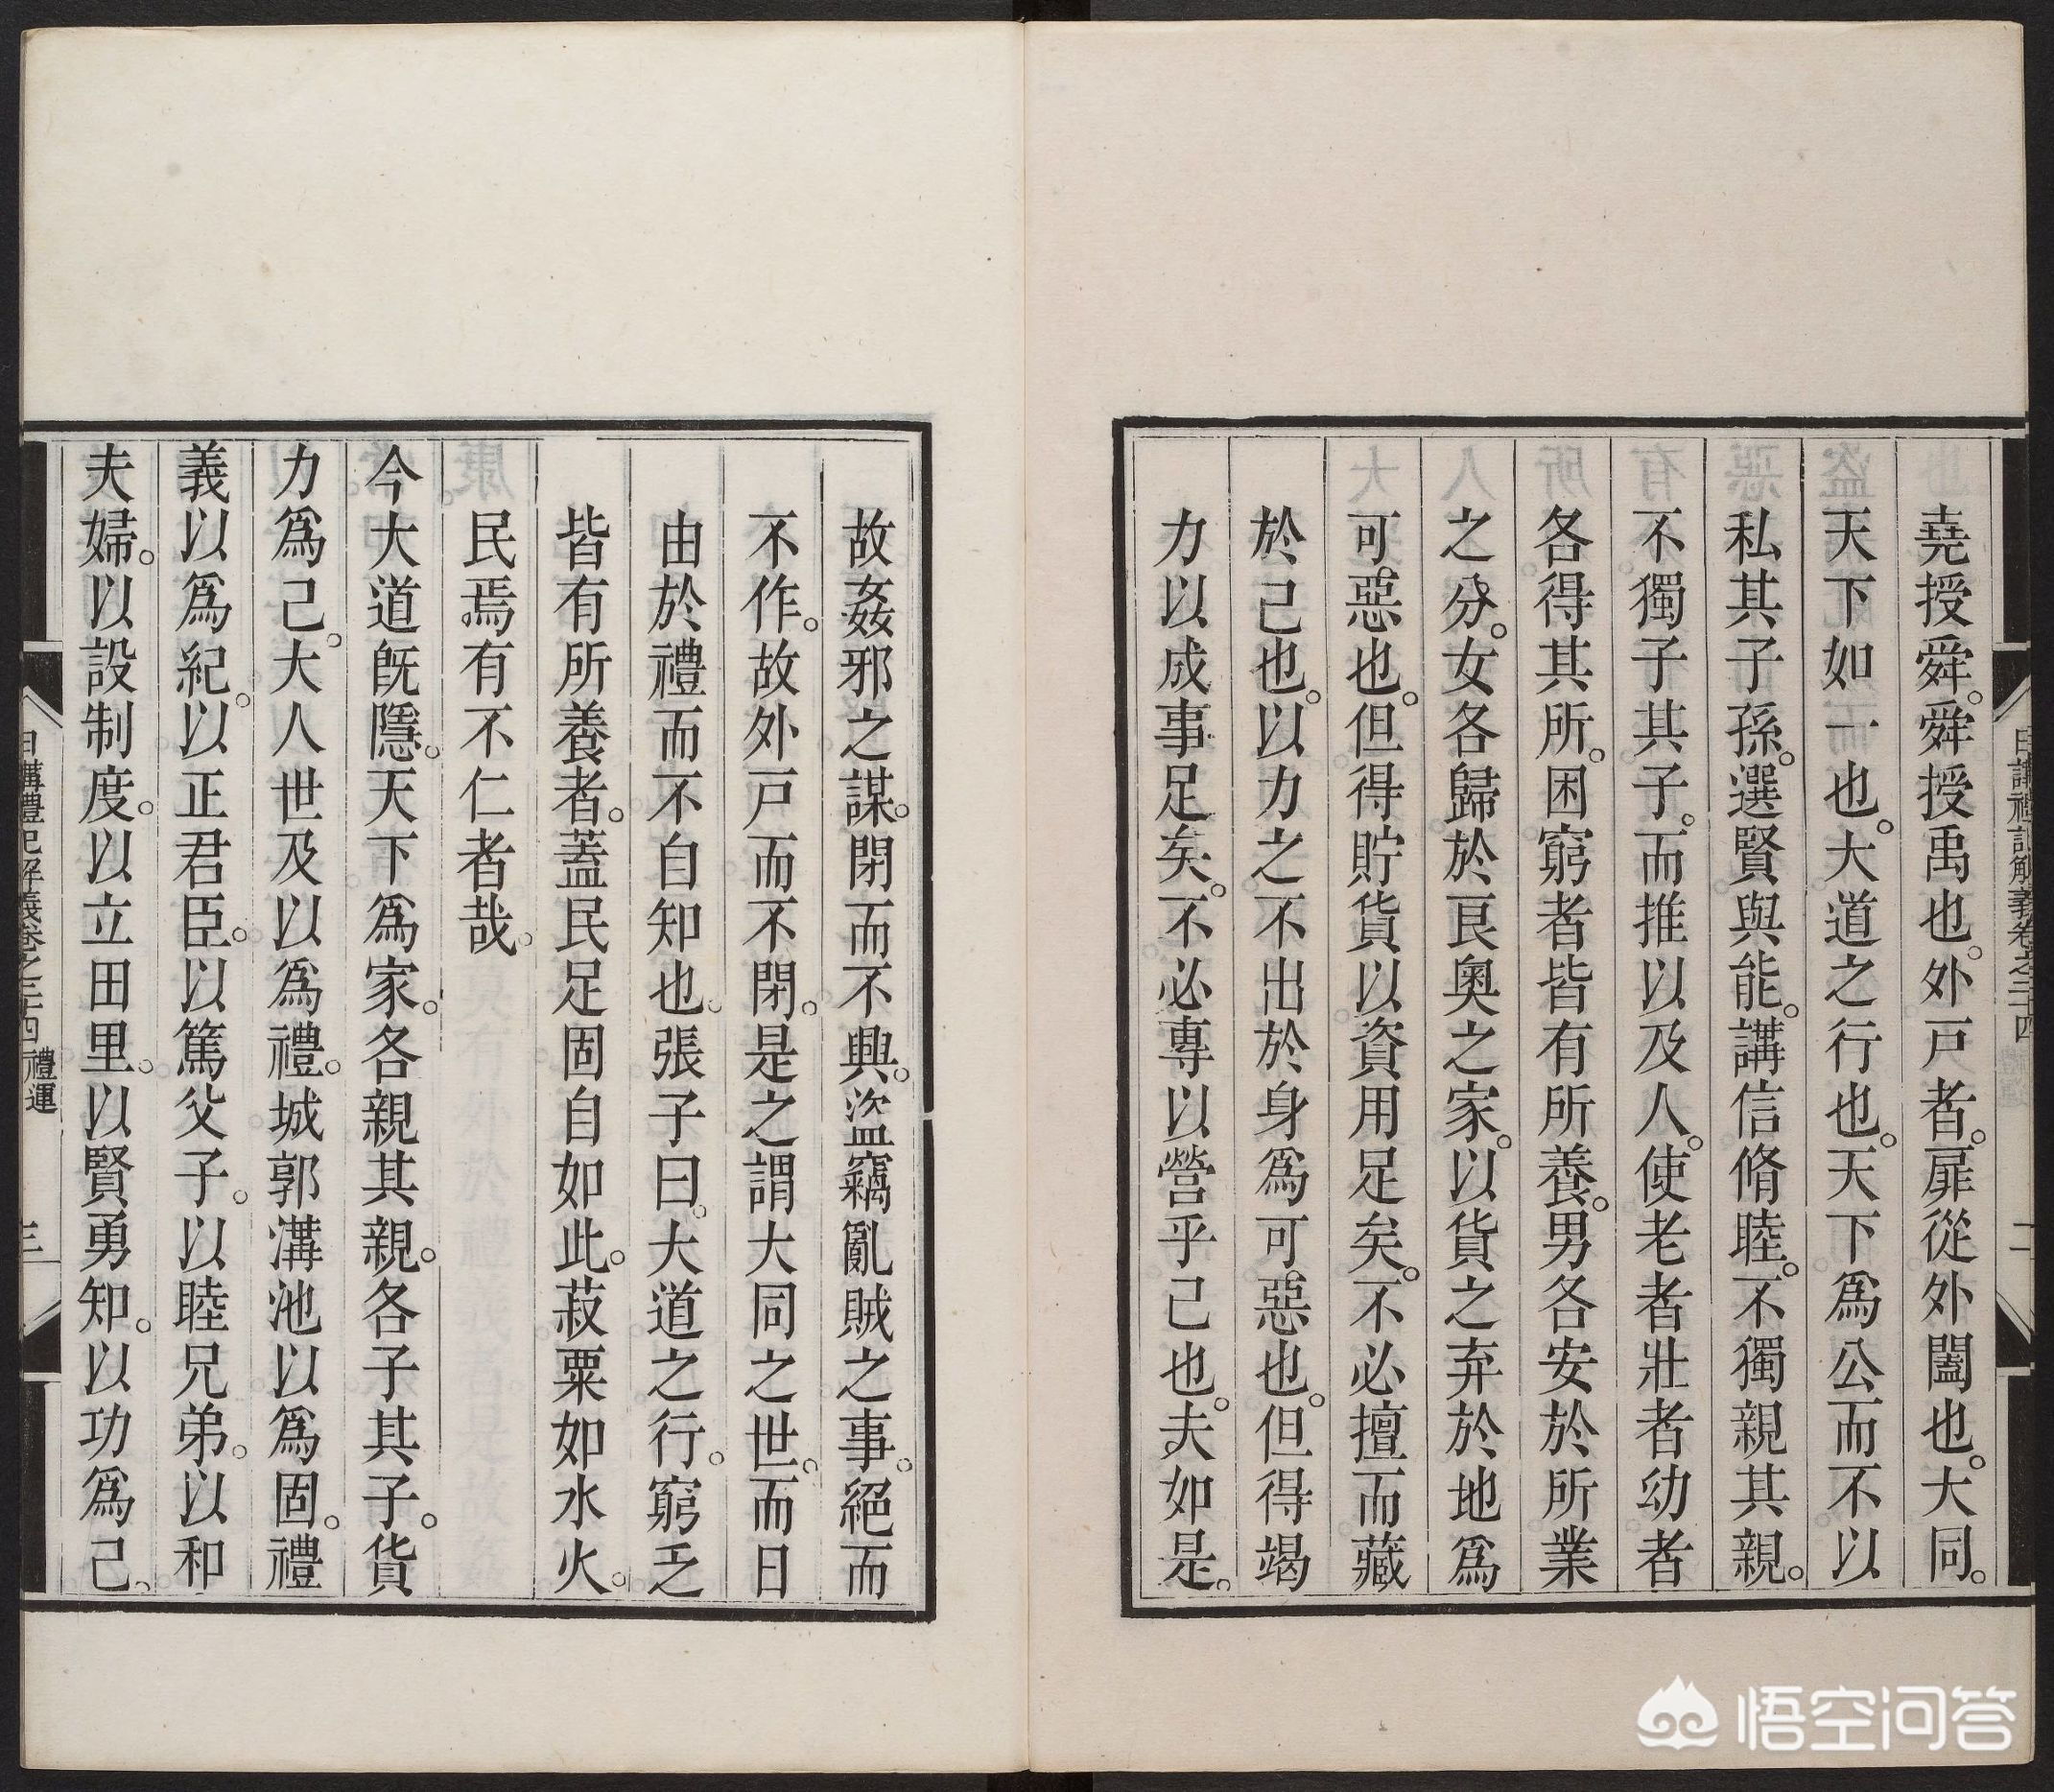 堯授舜。舜授禹也。外戸者。扉從外闔也。大同。
天下如一也。大道之行也。天下爲公而不以
私其子孫。選賢與能。講信脩睦。不獨親其親。
不獨子其子。而推以及人。使老者壯者幼者
各得其所。困窮者皆有所養。男各安於所業
之分。女各歸於良奧之家。以貨之弃於地爲
可惡也。但得貯貨以資用足矣。不必擅而藏
於己也。以力之不出於身爲可惡也。但得竭
力以成事足矣。不必專以營乎己也。夫如是。
故姦邪之謀。閉而不興。盜竊亂賊之事。絕而
不作。故外戸而不閉。是之謂大同之世。而日
由於禮而不自知也。張子曰。大道之行。窮乏
皆有所養者。蓋民足固自如此。菽粟如水火。
民焉有不仁者哉。
今大道旣隱。天下爲家。各親其親。各子其子。貨
力爲己。大人世及以爲禮。城郭溝池以爲固。禮
義以爲紀。以正君臣。以篤父子。以睦兄弟。以和
夫婦。以設制度。以立田里。以賢勇知。以功爲己。
日講禮記解義卷之三十四 禮運 三
悟空问答